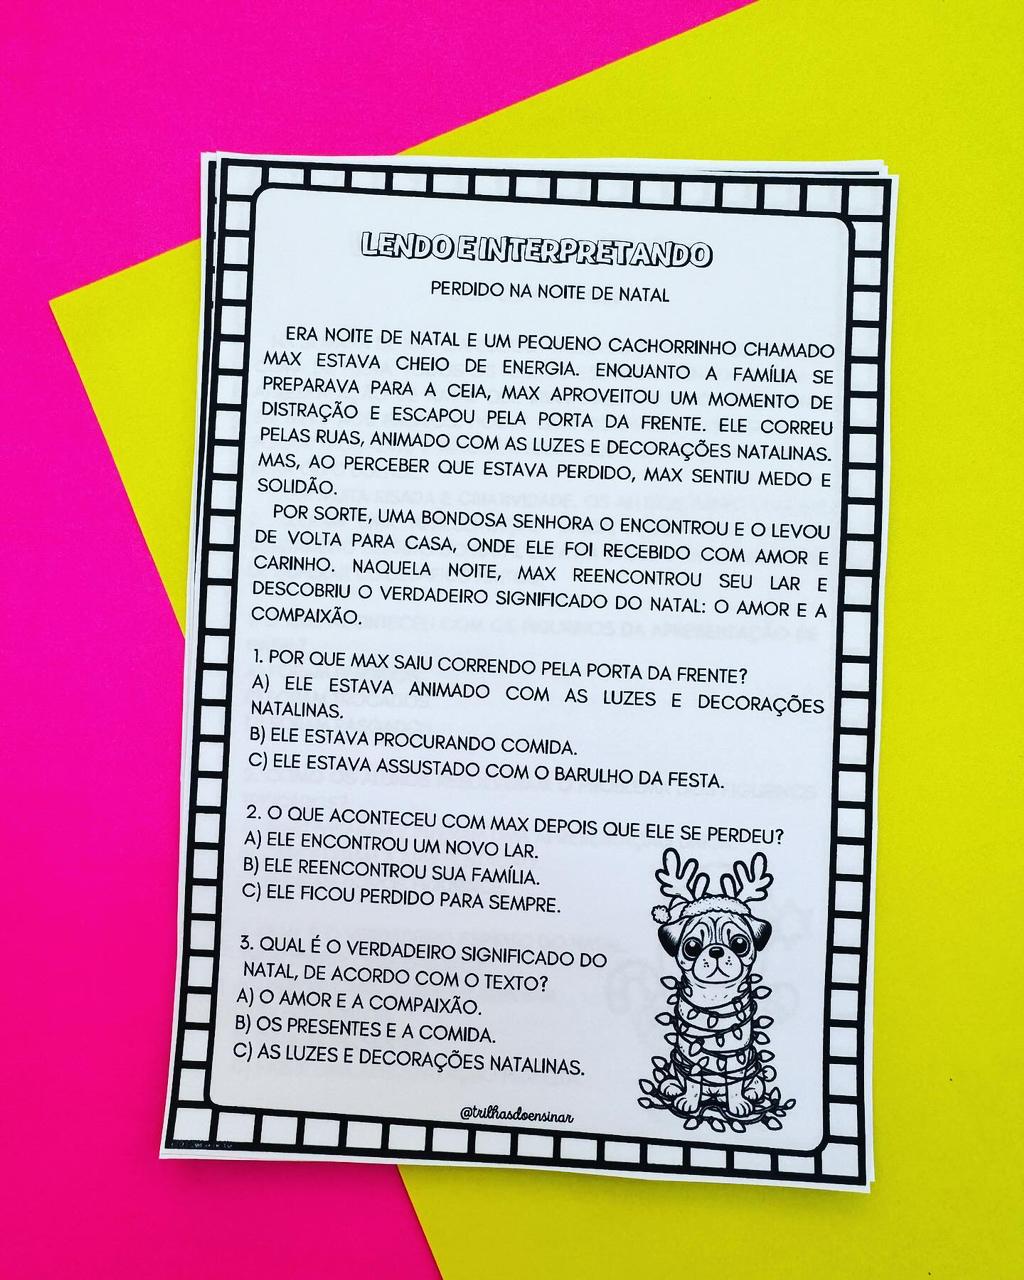 LENDO E INTERPRETANDO
PERDIDO NA NOITE DE NATAL
ERA NOITE DE NATAL E UM PEQUENO CACHORRINHO CHAMADO
MAX ESTAVA CHEIO DE ENERGIA. ENQUANTO A FAMÍLIA SE
PREPARAVA PARA A CEIA, MAX APROVEITOU UM MOMENTO DE
DISTRAÇÃO E ESCAPOU PELA PORTA DA FRENTE. ELE CORREU
PELAS RUAS, ANIMADO COM AS LUZES E DECORAÇÕES NATALINAS.
MAS, AO PERCEBER QUE ESTAVA PERDIDO, MAX SENTIU MEDO E
SOLIDÃO.
POR SORTE, UMA BONDOSA SENHORA O ENCONTROU E O LEVOU
DE VOLTA PARA CASA, ONDE ELE FOI RECEBIDO COM AMOR E
CARINHO. NAQUELA NOITE, MAX REENCONTROU SEU LAR E
DESCOBRIU O VERDADEIRO SIGNIFICADO DO NATAL: O AMOR E A
COMPAIXÃO.
1. POR QUE MAX SAIU CORRENDO PELA PORTA DA FRENTE?
A) ELE ESTAVA ANIMADO COM AS LUZES E DECORAÇÕES
NATALINAS.
B) ELE ESTAVA PROCURANDO COMIDA.
C) ELE ESTAVA ASSUSTADO COM O BARULHO DA FESTA.
2. O QUE ACONTECEU COM MAX DEPOIS QUE ELE SE PERDEU?
A) ELE ENCONTROU UM NOVO LAR.
B) ELE REENCONTROU SUA FAMÍLIA.
C) ELE FICOU PERDIDO PARA SEMPRE.
3. QUAL É O VERDADEIRO SIGNIFICADO DO
NATAL, DE ACORDO COM O TEXTO?
A) O AMOR E A COMPAIXÃO.
B) OS PRESENTES E A COMIDA.
C) AS LUZES E DECORAÇÕES NATALINAS.
@trilhasdoensinar